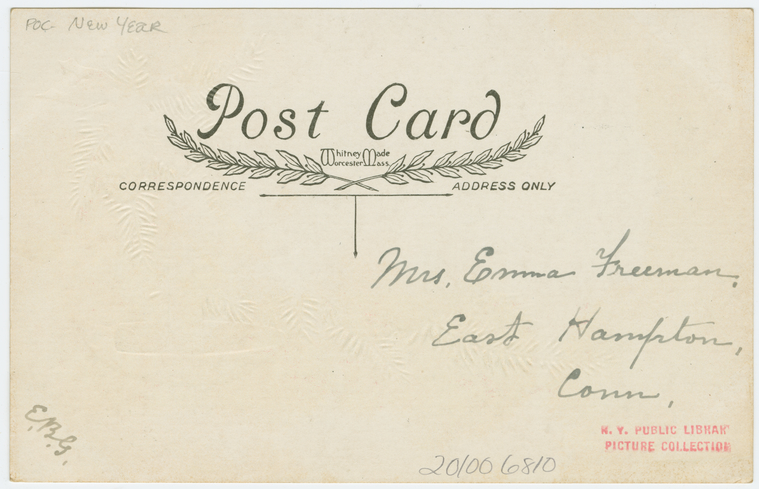 POC- NEW YEAR
Post Card
Whitney Made
Worcester Mass
CORRESPONDENCE
ADDRESS ONLY
Mrs. Emma Freeman.
East Hampton,
Conn,
E.B.G.
N. Y. PUBLIC LIBRARY
PICTURE COLLECTION
201006810